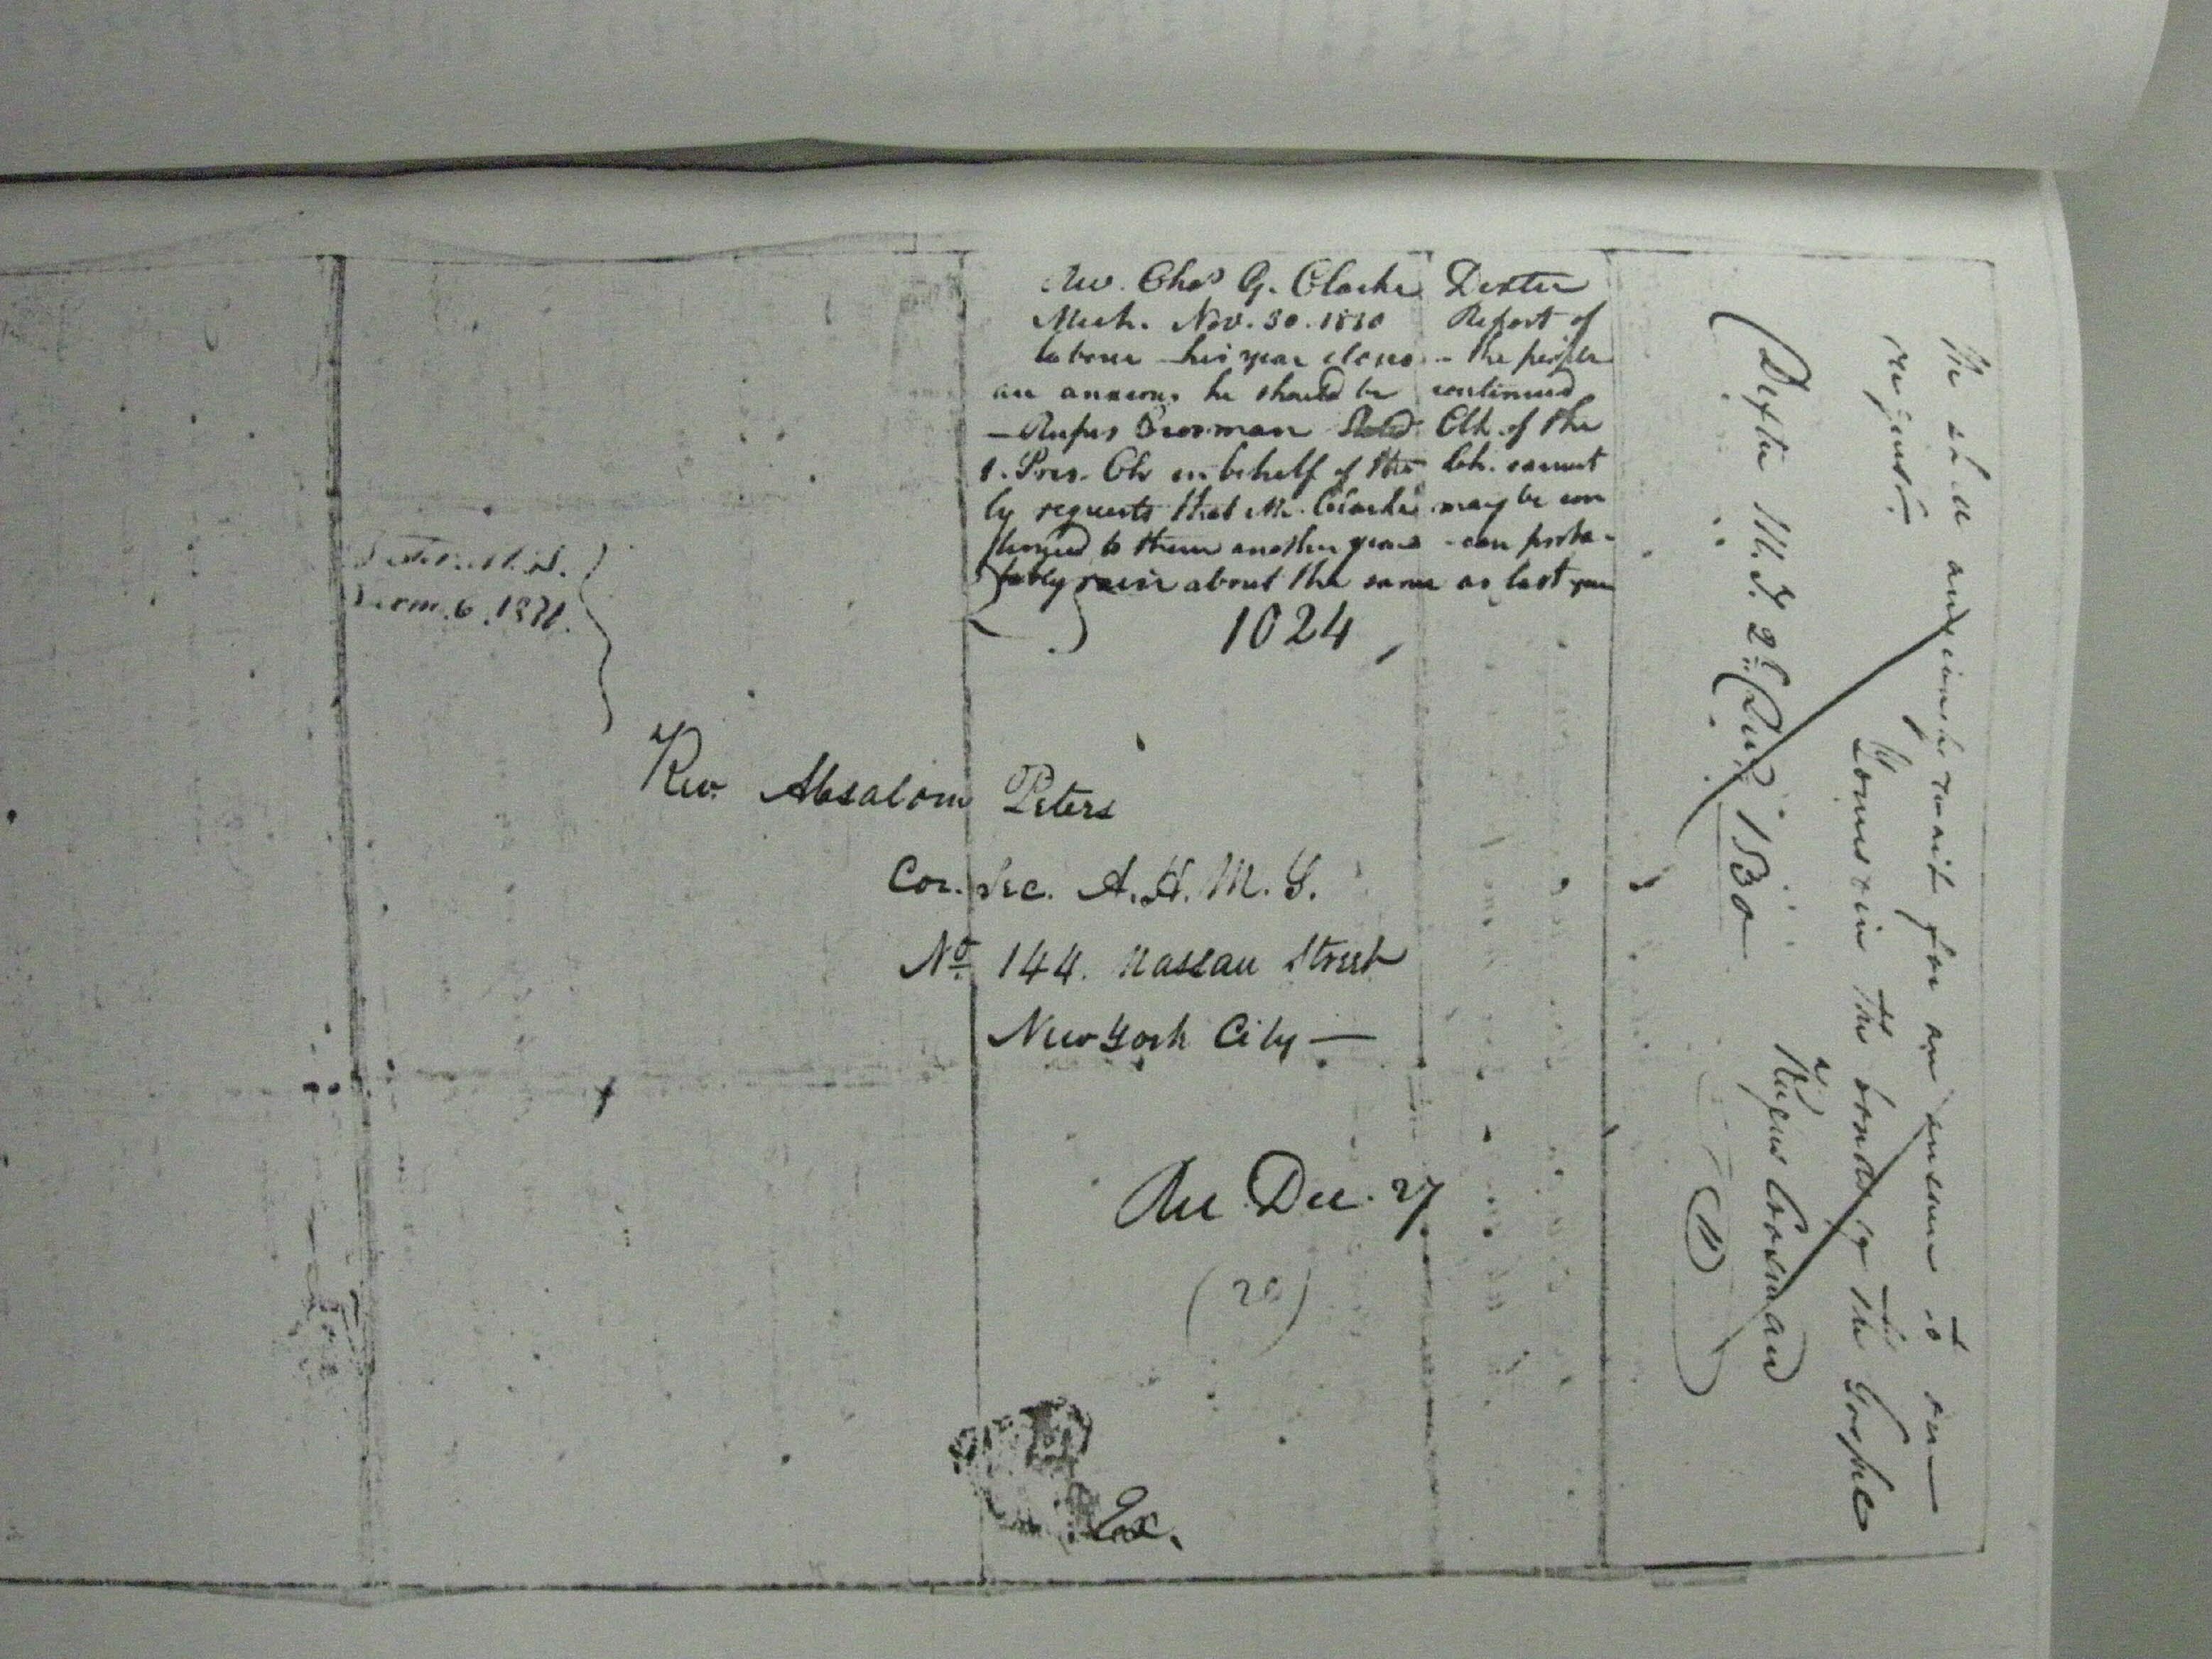 Rev. Chas G. Clarke Dexter
Mich. Nov. 30. 1830 Report of
labour - his year closes - the people
are anxious he should be continued
- Rufus Crosman Stated Clk of the
1. Pres. Ch in behalf of the Ch. earnest
ly requests that Mr. Clarke may be con
tinued to them another year - can proba-
bably raise about the same as last year
1024
Dexter M.T.
Decm. 6. 1830.
Rev. Absalom Peters
Cor. Sec. A. H. M. S.
No 144. Nassau Street
New York City —
Rec Dec. 27
(20)
Ex.
We shall anxiously wait for an answer to our
request.
Yours in the bonds of the Gospel
Rufus Crosman
Dexter M. T. 2d Dec 1830